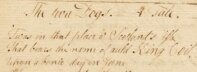 The twa Dogs. A Tale.
Twas in that place o' Scotland's isle
That bears the name of auld King Coil
Upon a bonie day in June